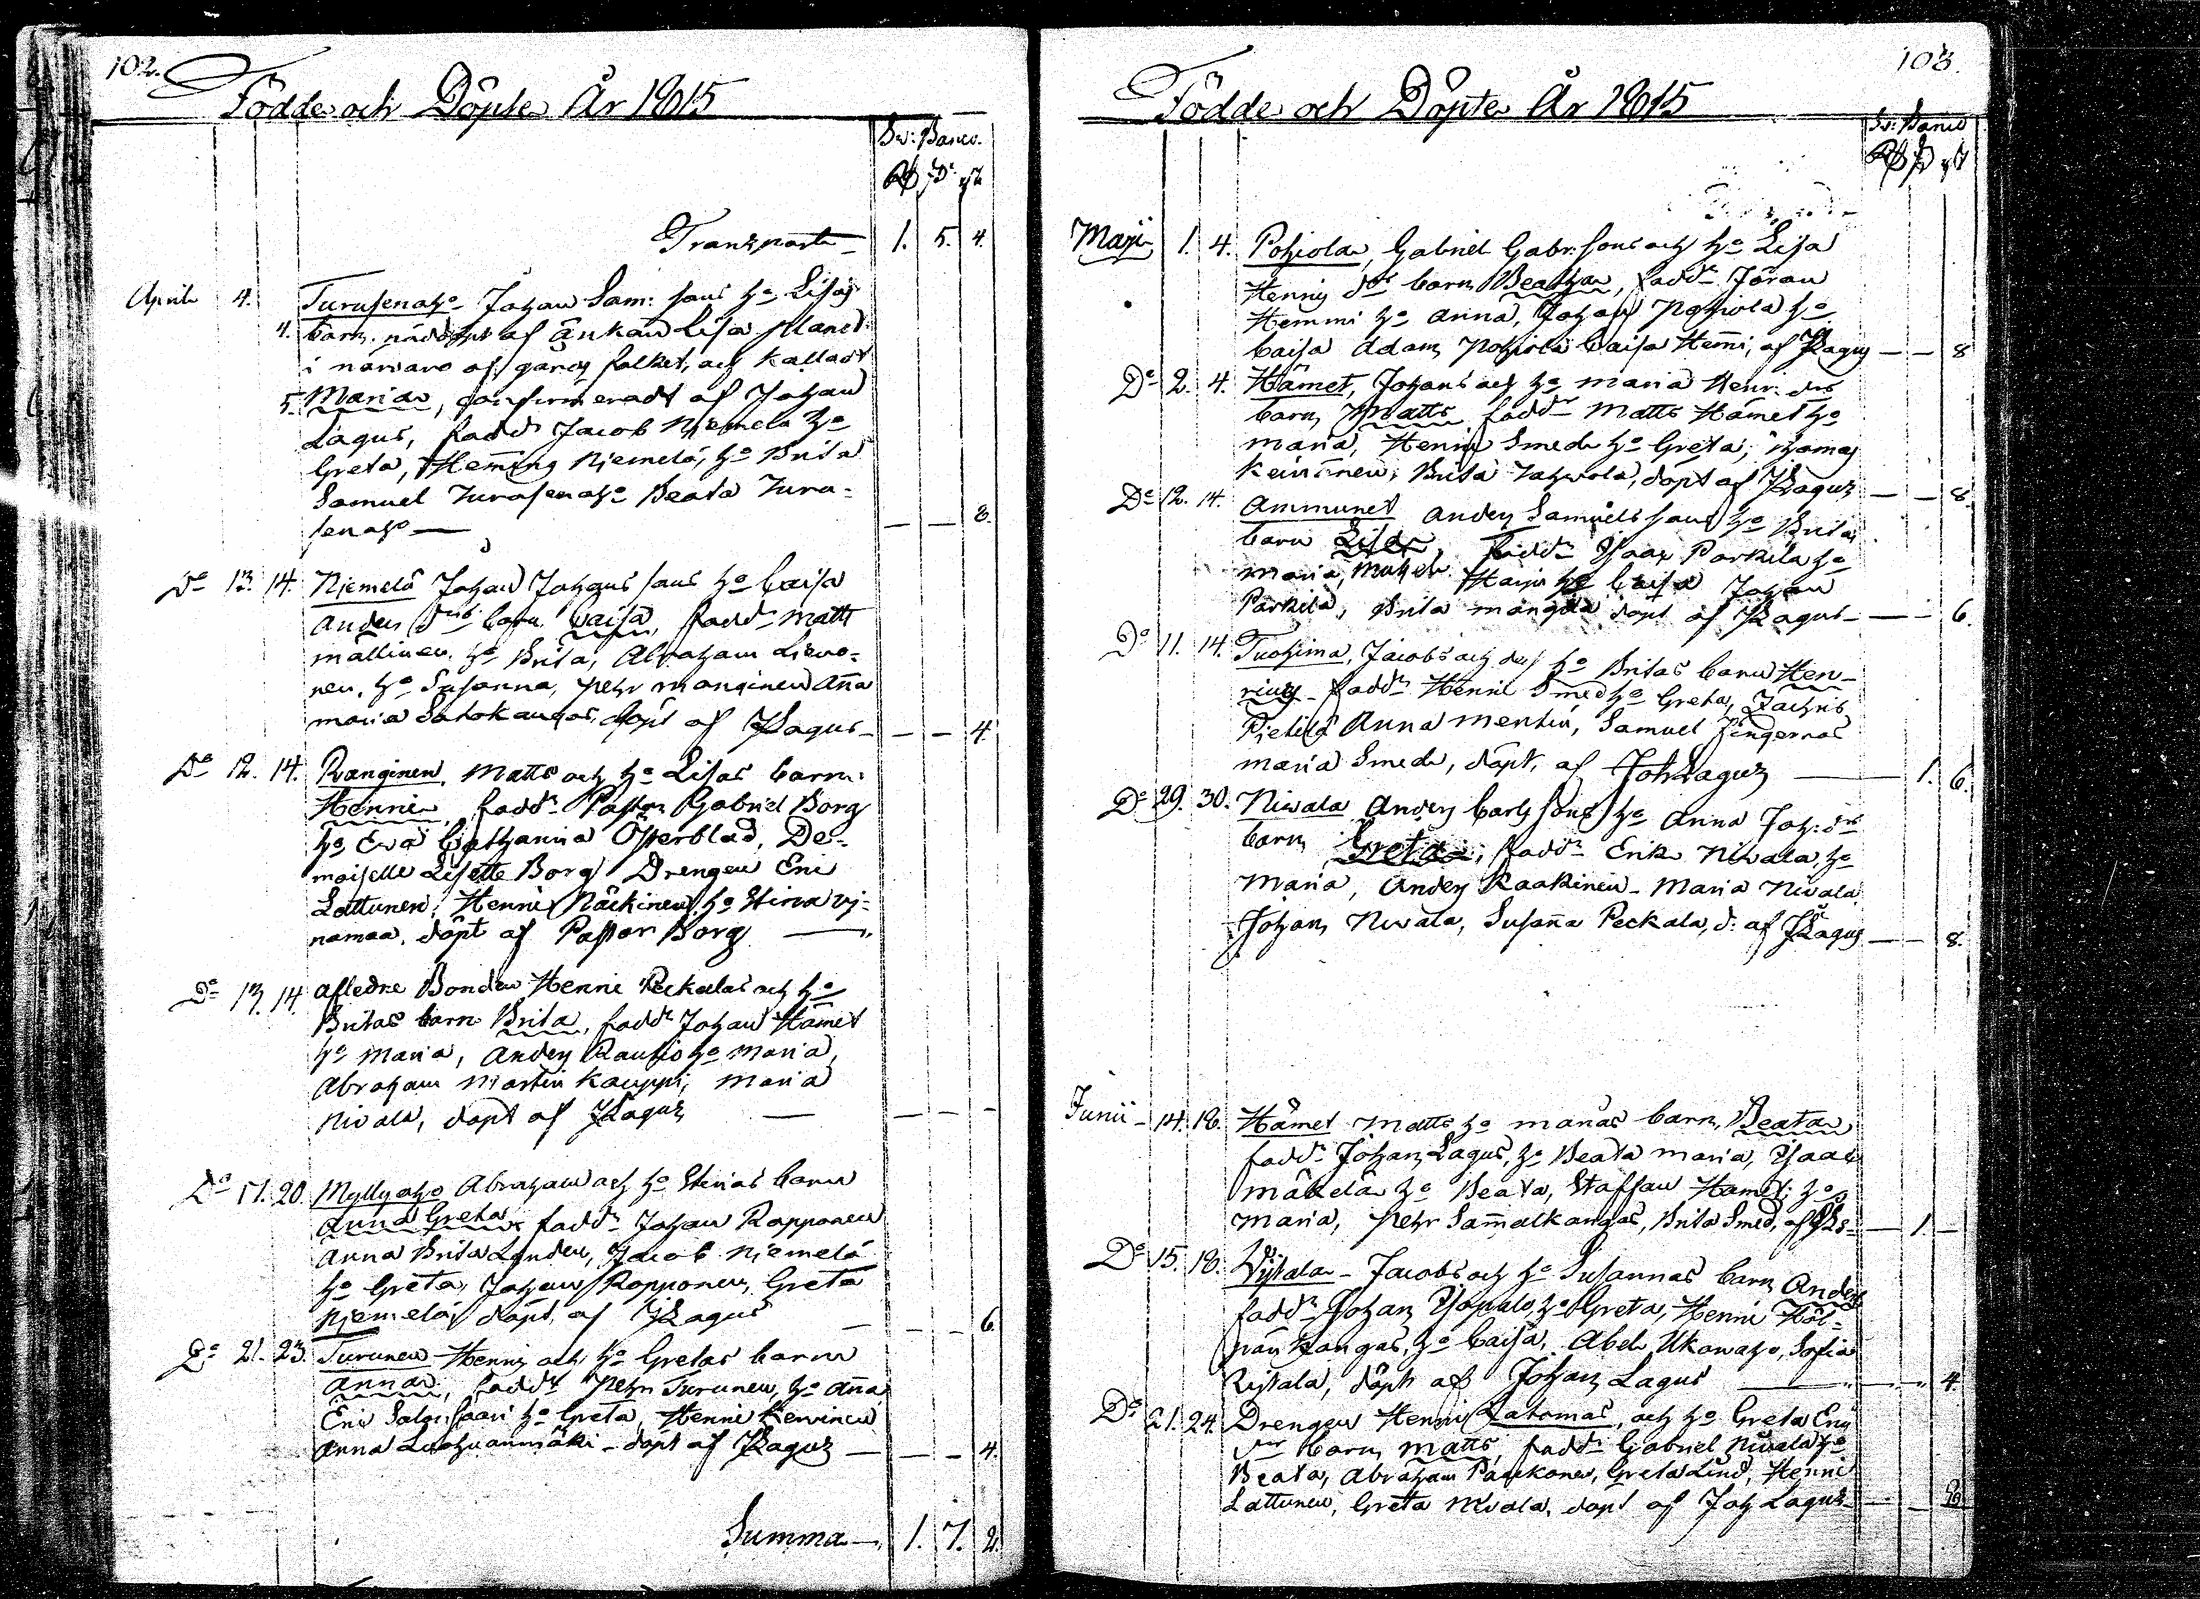 102.
Födde och Döpte År 1815
Sv: Banco.
Rd
Transport 1. 5. 4.
April 4. Turusenaho Johan Sam: sons ho Lisas
4. barn nöddöpt af Änkan Lisa
i närvaro af gårds folket, och kalladt
5. Maria, confirmeradt af Johan
Lagus, fadd: Jacob Niemelä ho
Greta, Hemming Niemelä, ho Brita
Samuel Turusenaho Beata Turu-
senaho — — — 8.
Do 13. 14. Niemelä Johan Johans sons ho Caisa
Anders drs barn Caisa, fadd: Matts
Mallinen, ho Brita, Abraham
nen, ho Susanna, Pehr Manginen Aña
Maria Satokangas, döpt af JLagus — — 4.
Do 12. 14. Ranginen Matts och ho Lisas barn
Henric, fadd: Pastor Gabriel Borg
ho Eva Catharina Österblad, De-
moiselle Lisette Borg Drengen Eric
Lattunen, Henric Näckinen, ho Stina
namaa, döpt af Pastor Borg —
Do 13. 14. afledne Bonden Henric Peckalas och ho
Britas barn Brita, fadd: Johan Hämet
ho Maria, Anders Rautio ho Maria,
Abraham Martin Kauppi, Maria
Nivala, döpt af JLagus — — — —
Do 17. 20. Myllyaho Abraham och ho Stinas barn
Anna Greta, fadd: Johan Rapponen
Anna Brita Landen, Jacob Niemelä
ho Greta, Johan Rapponen, Greta
Niemelä, döpt af JLagus — — — 6.
Do 21. 23. Turunen Henric och ho Gretas barn
Anna, fadd: Pehr Turunen, ho Aña
Eric Salonsaari ho Greta, Henric Kervinen
Anna döpt af JLagus — — — 4.
Summa — 1. 7. 2.
103.
Födde och Döpte År 1815
Sv: Banco
Rd
Maji 1. 4. Pohiola, Gabriel Gabr: sons och ho Lisa
Henrics drs barn Beata, fadd: Jöran
Hemmi ho Anna, Johan Pohiola ho
Caisa Adam Pohiola Caisa Hemi, af JLagus — — 8
Do 2. 4. Hämet, Johans och ho Maria Henr: drs
barn Matts fadd: Matts Hämet ho
Maria, Henric Smed ho Greta, Thomas
Brita döpt af JLagus — — 8.
Do 12. 14. Ammunet Anders Samuels sons ho Britas
barn Lisa, fadd: Isaac Parkila ho
Maria, Harju ho Caisa Johan
Parkila, Brita döpt af JLagus — — 6.
Do 11. 14. Tuohima, Jacobs och ho Britas barn Hen-
ric, fadd: Henric Smed ho Greta, Zachris
Pietilä Anna Samuel Zingernas
Maria Smed, döpt af Joh Lagus — 1. 6.
Do 29. 30. Nivala Anders Carls sons ho Anna Joh: drs
barn Greta, fadd: Erik Nivala, ho
Maria, Anders Raakinen, Maria Nivala
Johan Nivala, Susaña Peckala, d: af JLagus — — 8.
Junii 14. 18. Hämet Matts ho Marias barn, Beata
fadd: Johan Lagus, ho Beata Maria, Isaac
Mäkelä ho Beata, Staffan Hamet, ho
Maria, Pehr Samalkangas, Brita Smed, af — 1. —
Do 15. 18. Jacobs och ho Susannas barn Anders
fadd: Johan ho Greta, Henric Höl-
ho Caisa, Abel Ukonaho, Sofia
döpt af Johan Lagus — — 4.
Do 21. 24. Drengen Henric Latomas, och ho Greta Erics
dr barn Matts, fadd: Gabriel Nivala ho
Beata, Abraham Paackonen, Greta Lind, Henric
Lattunen, Greta Nivala, döpt af Joh Lagus